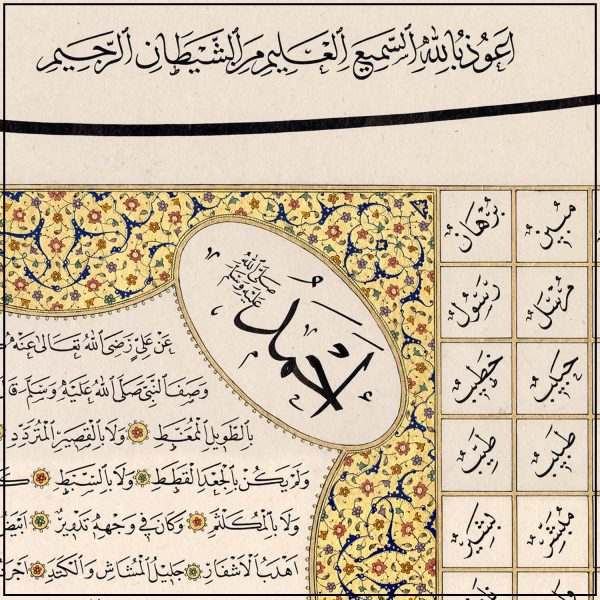 اعوذ بالله السميع العليم من الشيطان الرجيم
احمد
صلى الله عليه وسلم
عن علي رضي الله تعالى عنه
وصف النبي صلى الله عليه وسلم
بالطويل الممغط ولا بالقصير المتردد
ولم يكن بالجعد القطط ولا بالسبط
ولا بالمكلثم وكان في وجهه تدوير ابيض
اهدب الاشفار جليل المشاش والكتد
مبين برهان
مرسل رسول
حبيب خطيب
طبيب طيب
مبشر بشير